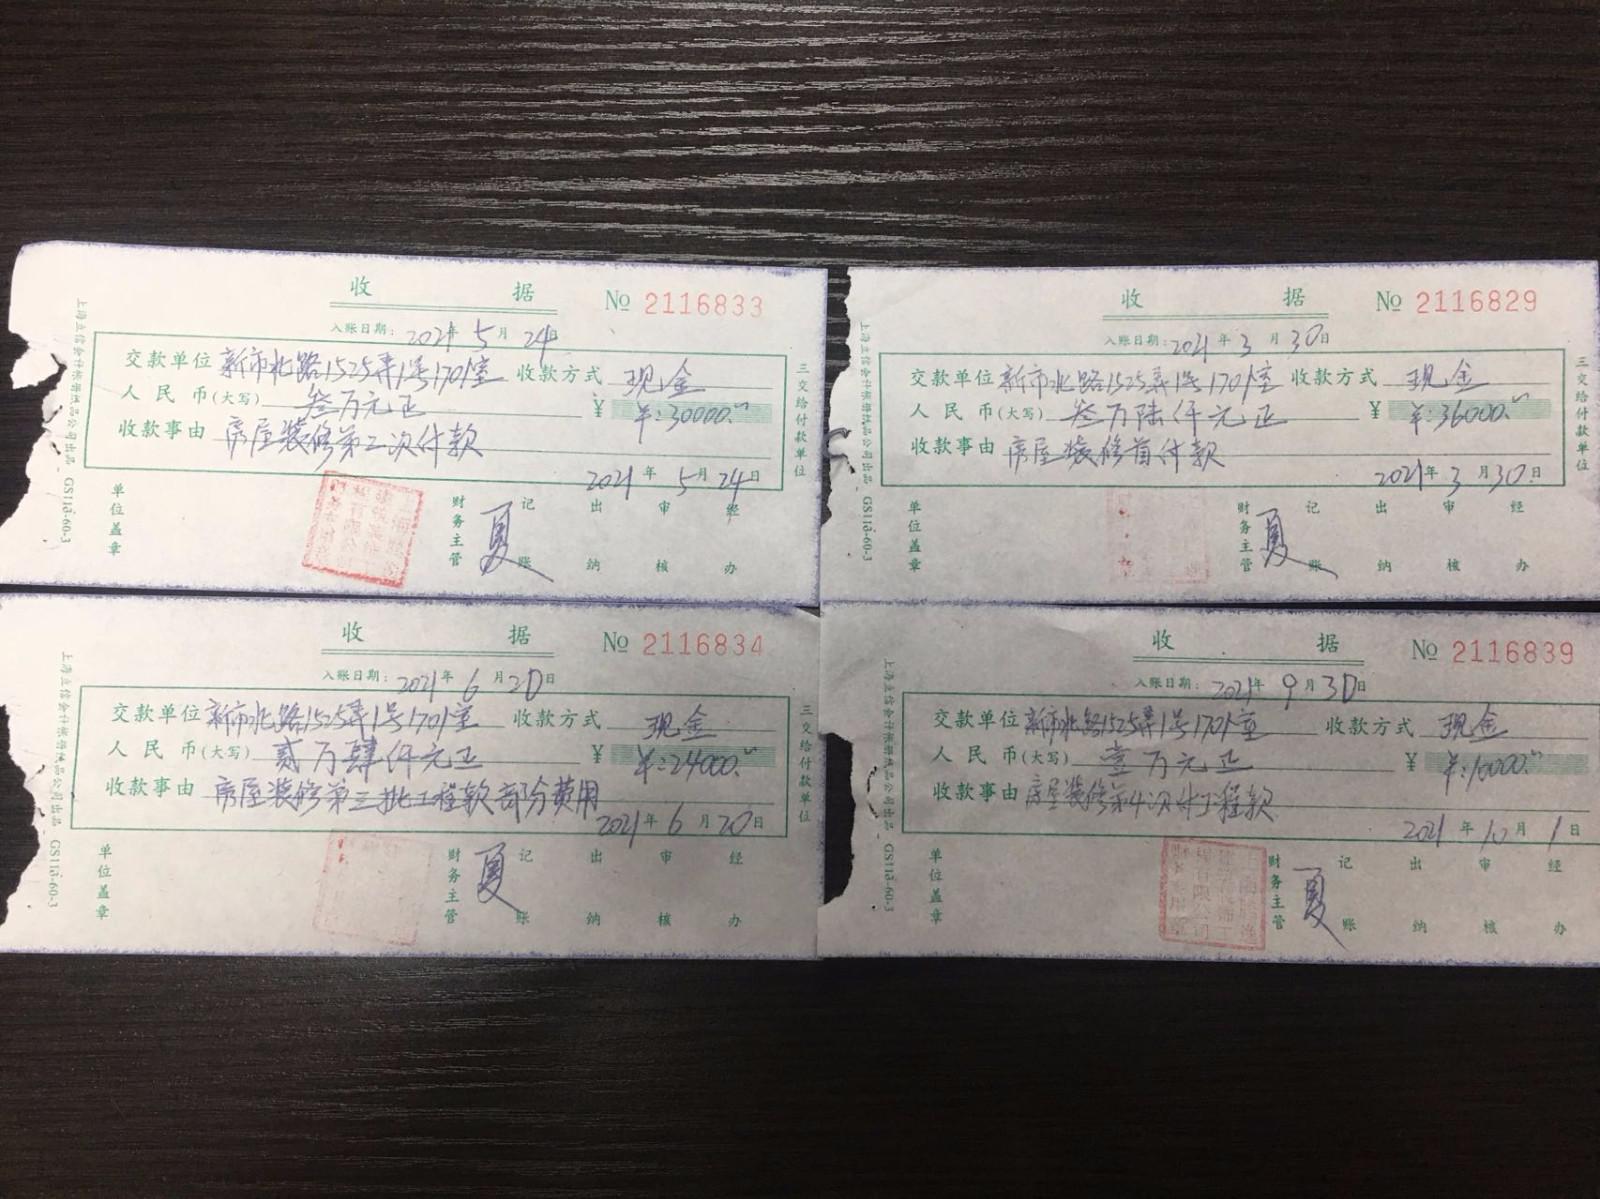 收 据 No 2116833
入账日期: 2021年 5月 24日
交款单位 新市北路1525弄1号1701室 收款方式 现金
人民币(大写) 叁万元正 ¥ ¥:30000.
收款事由 房屋装修第二次付款
2021年 5月 24日
单位盖章 财务主管 夏 记账 出纳 审核 经办
三交给付款单位
上海立信会计账册纸品公司出品 - GS113-60-3
收 据 No 2116829
入账日期: 2021年 3月 30日
交款单位 新市北路1525弄1号1701室 收款方式 现金
人民币(大写) 叁万陆仟元正 ¥ ¥:36000.
收款事由 房屋装修首付款
2021年 3月 30日
单位盖章 财务主管 夏 记账 出纳 审核 经办
三交给付款单位
上海立信会计账册纸品公司出品 - GS113-60-3
收 据 No 2116834
入账日期: 2021年 6月 20日
交款单位 新市北路1525弄1号1701室 收款方式 现金
人民币(大写) 贰万肆仟元正 ¥ ¥:24000.
收款事由 房屋装修第三批工程款部分费用
2021年 6月 20日
单位盖章 财务主管 夏 记账 出纳 审核 经办
三交给付款单位
上海立信会计账册纸品公司出品 - GS113-60-3
收 据 No 2116839
入账日期: 2021年 9月 30日
交款单位 新市北路1525弄1号1701室 收款方式 现金
人民币(大写) 壹万元正 ¥ ¥:10000.
收款事由 房屋装修第4次付工程款
2021年 10月 1日
单位盖章 财务主管 夏 记账 出纳 审核 经办
上海立信会计账册纸品公司出品 - GS113-60-3